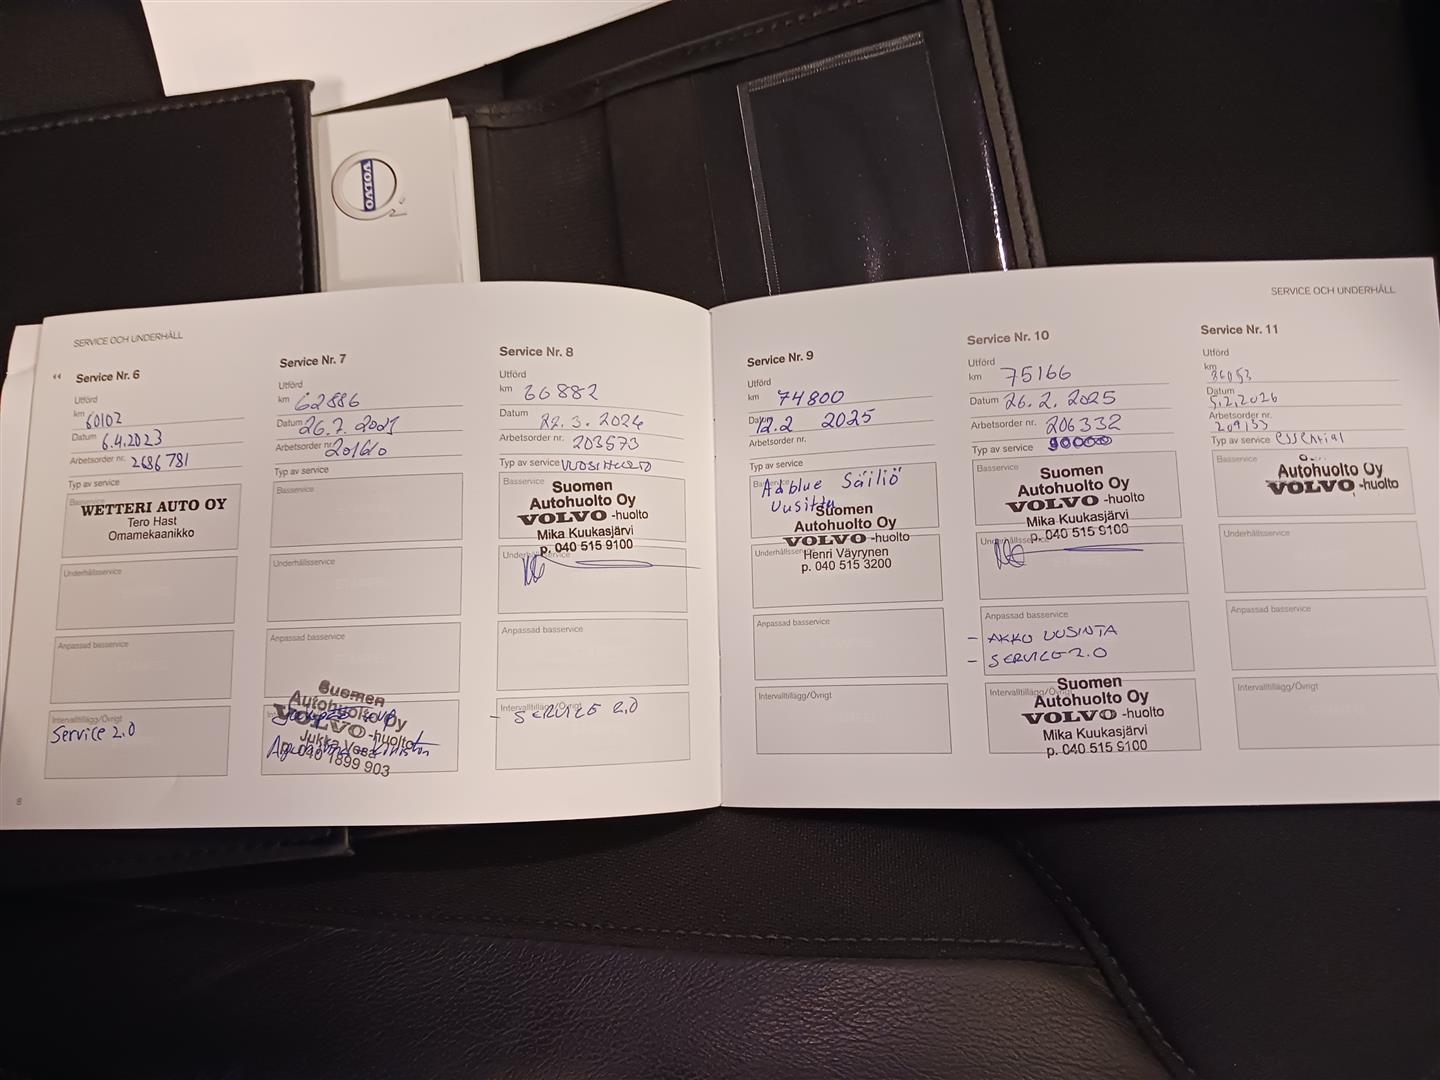 VOLVO
SERVICE OCH UNDERHÅLL
Service Nr. 6
Utförd
km 60102
Datum 6.4.2023
Arbetsorder nr. 2686781
Typ av service
Basservice
WETTERI AUTO OY
Tero Hast
Omamekaanikko
Underhållsservice
Anpassad basservice
Intervalltillägg/Övrigt
Service 2.0
8
Service Nr. 7
Utförd
km 62886
Datum
Arbetsorder nr.
Typ av service
Basservice
Underhållsservice
Anpassad basservice
Suomen
Autohuolto Oy
VOLVO -huolto
Jukka Vesa
p. 040 1899 903
Service Nr. 8
Utförd
km 66882
Datum 22.3.2024
Arbetsorder nr. 203573
Typ av service VUOSIHUOLTO
Basservice
Suomen
Autohuolto Oy
VOLVO -huolto
Mika Kuukasjärvi
p. 040 515 9100
Underhållsservice
Anpassad basservice
Intervalltillägg/Övrigt
- SERVICE 2.0
SERVICE OCH UNDERHÅLL
Service Nr. 9
Utförd
km 74800
Datum 12.2 2025
Arbetsorder nr.
Typ av service
Basservice
Adblue Säiliö
Uusittu
Suomen
Autohuolto Oy
VOLVO -huolto
Underhållsservice
Henri Väyrynen
p. 040 515 3200
Anpassad basservice
Intervalltillägg/Övrigt
Service Nr. 10
Utförd
km 75166
Datum 26.2.2025
Arbetsorder nr. 206332
Typ av service 90000
Basservice
Suomen
Autohuolto Oy
VOLVO -huolto
Mika Kuukasjärvi
p. 040 515 9100
Underhållsservice
Anpassad basservice
- AKKU UUSINTA
- SERVICE 2.0
Intervalltillägg/Övrigt
Suomen
Autohuolto Oy
VOLVO -huolto
Mika Kuukasjärvi
p. 040 515 9100
Service Nr. 11
Utförd
km 86053
Datum
5.2.2026
Arbetsorder nr.
209153
Typ av service essential
Basservice
Autohuolto Oy
VOLVO -huolto
Underhållsservice
Anpassad basservice
Intervalltillägg/Övrigt